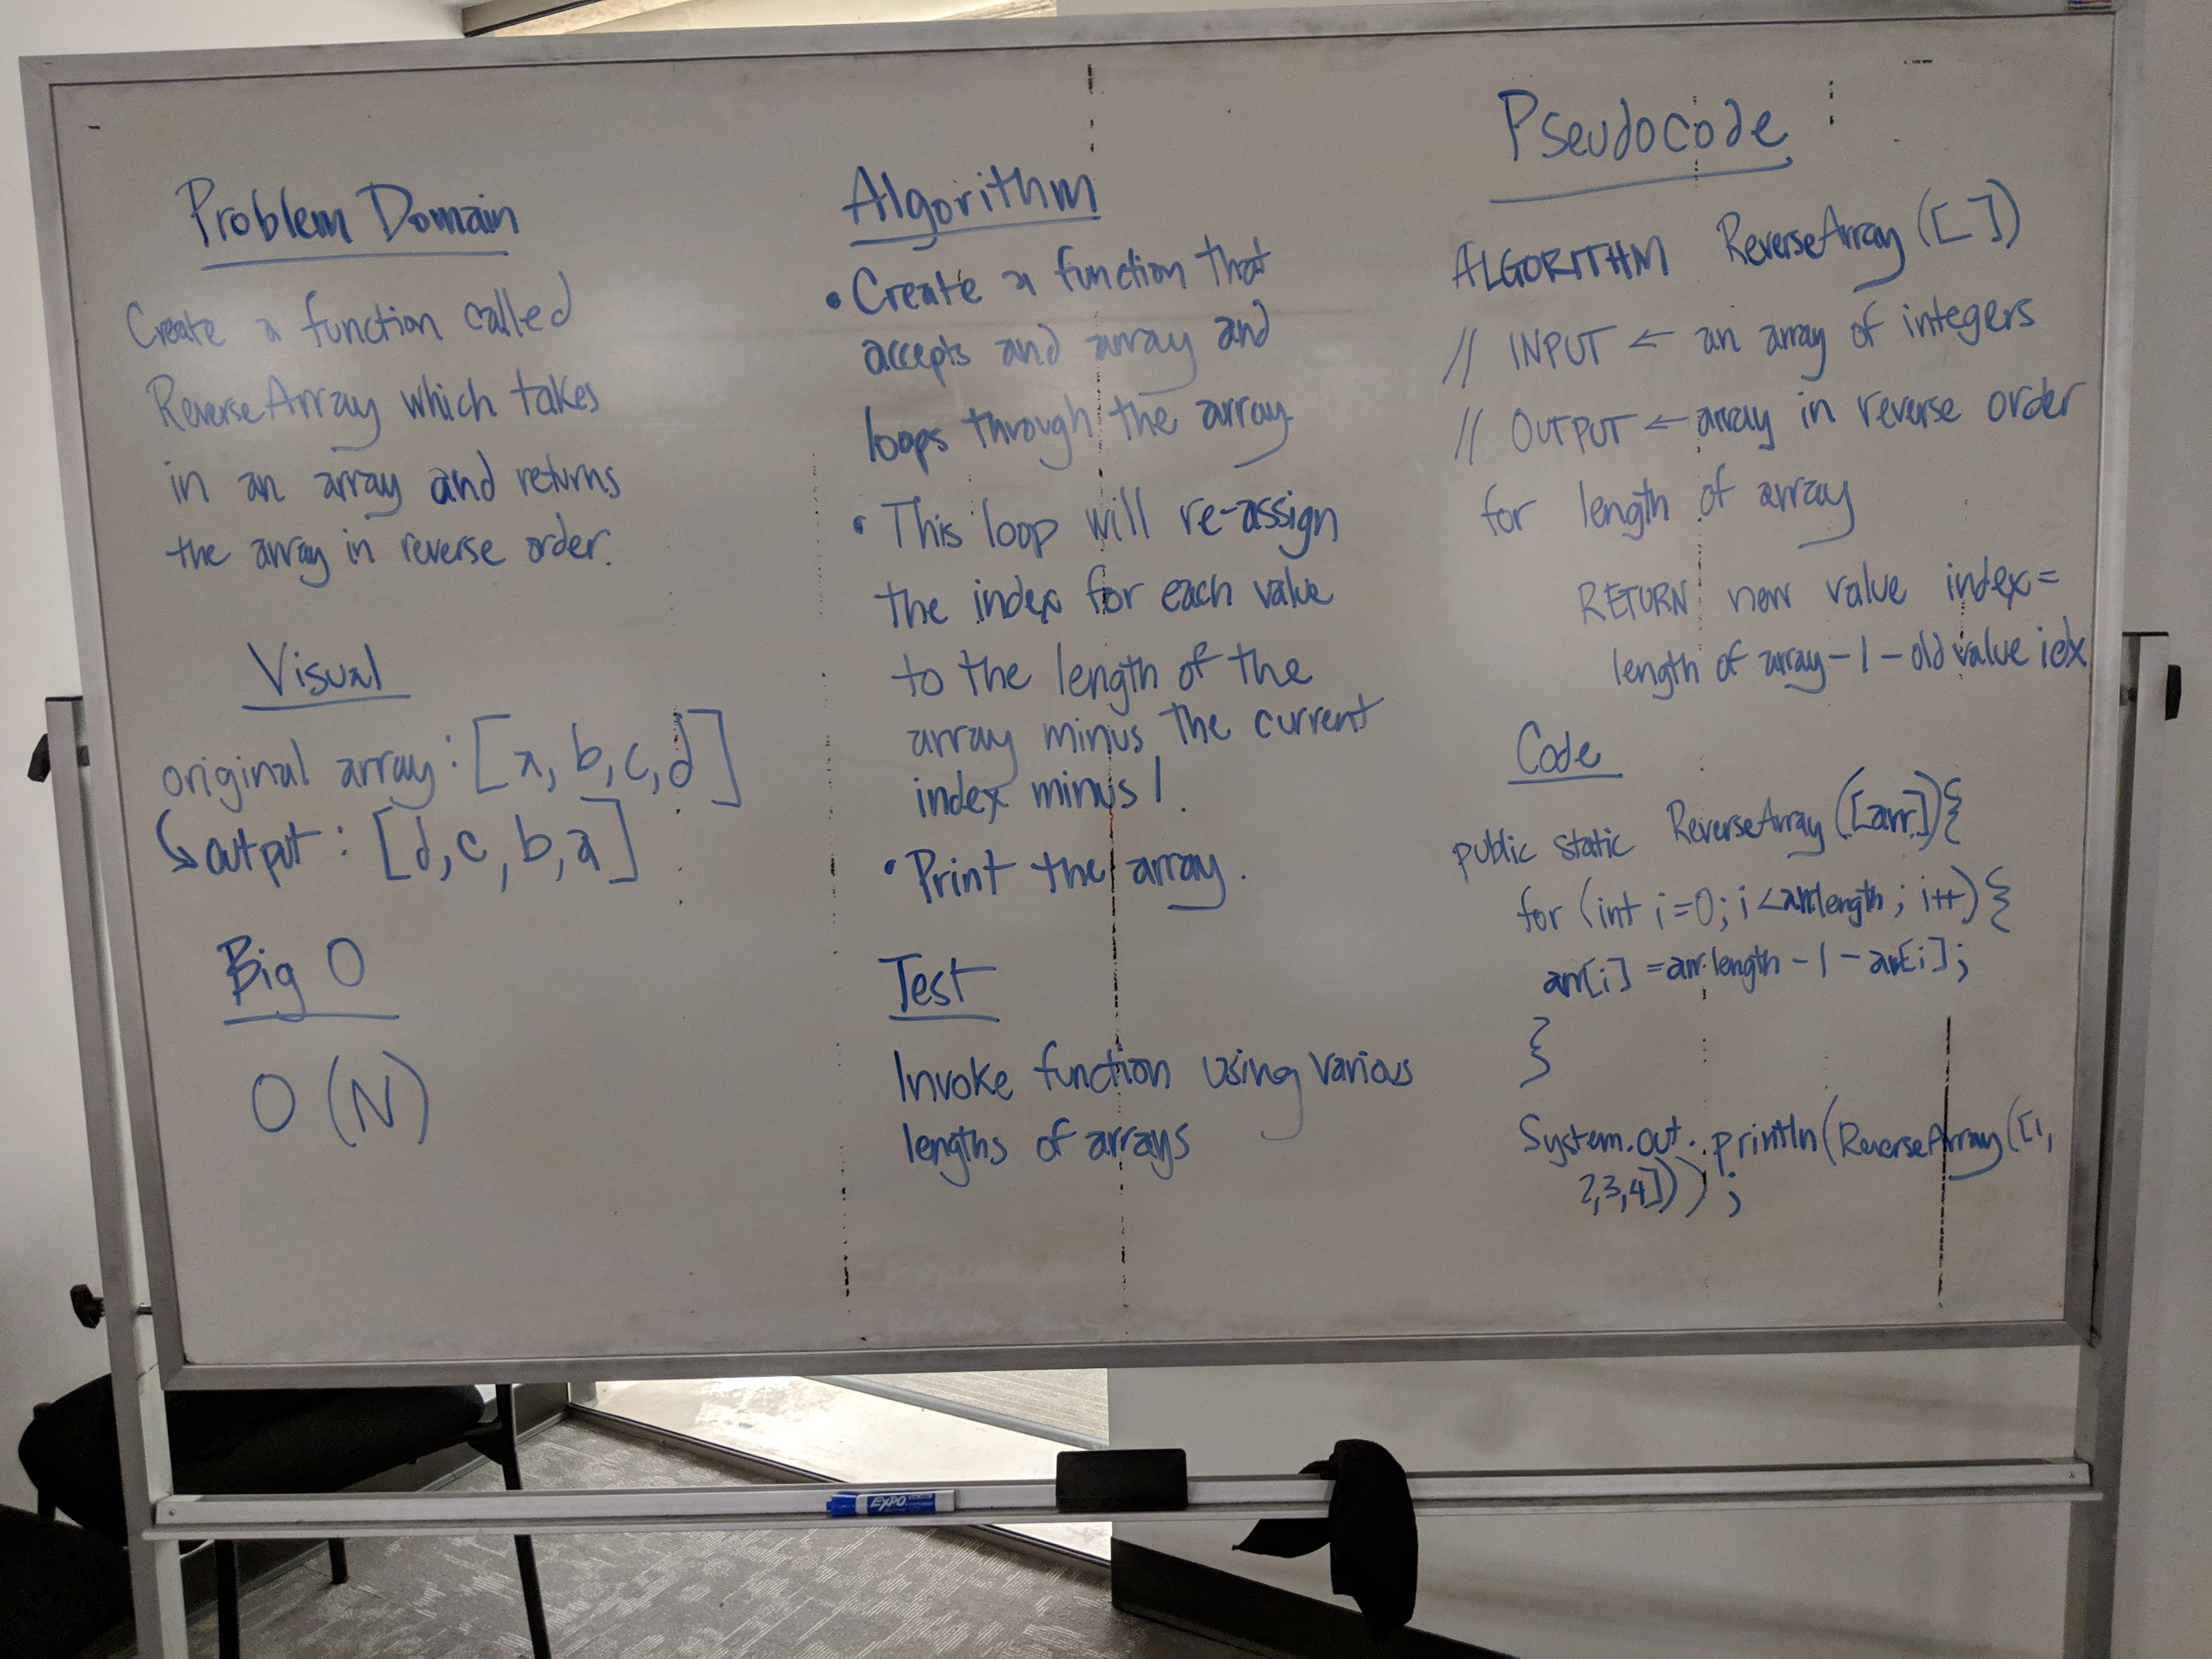 Problem Domain
Create a function called
ReverseArray which takes
in an array and returns
the array in reverse order.
Visual
original array: [a, b, c, d]
output: [d, c, b, a]
Big O
O(N)
Algorithm
• Create a function that
accepts and array and
loops through the array.
• This loop will re-assign
the index for each value
to the length of the
array minus the current
index minus 1.
• Print the array.
Test
Invoke function using various
lengths of arrays
Pseudocode
ALGORITHM ReverseArray([ ])
// INPUT ← an array of integers
// OUTPUT ← array in reverse order
for length of array
RETURN new value index =
length of array - 1 - old value idx
Code
public static ReverseArray([arr]){
for (int i=0; i<arr.length; i++){
arr[i] = arr.length - 1 - arr[i];
}
System.out.println(ReverseArray([1,
2,3,4]));
EXPO